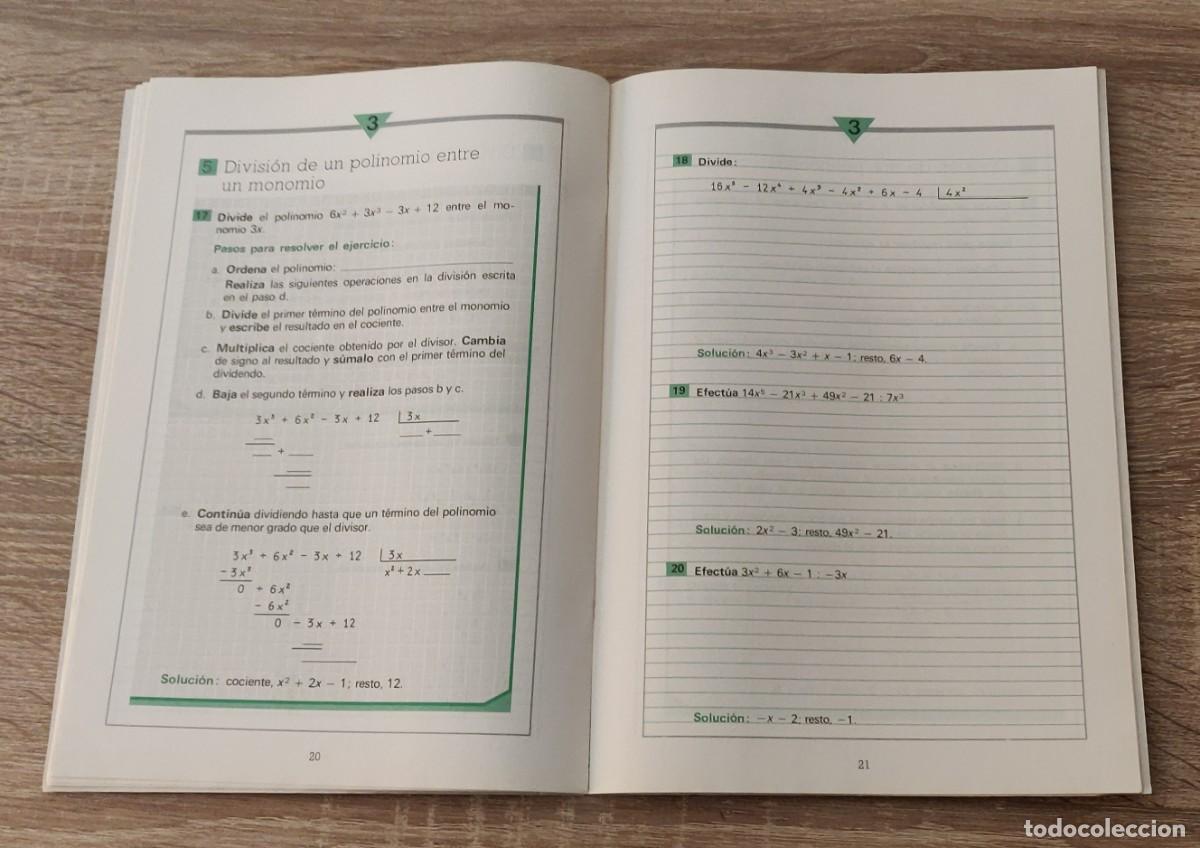 3
5 División de un polinomio entre
un monomio
17 Divide el polinomio 6x² + 3x³ − 3x + 12 entre el mo-
nomio 3x.
Pasos para resolver el ejercicio:
a. Ordena el polinomio:
Realiza las siguientes operaciones en la división escrita
en el paso d.
b. Divide el primer término del polinomio entre el monomio
y escribe el resultado en el cociente.
c. Multiplica el cociente obtenido por el divisor. Cambia
de signo al resultado y súmalo con el primer término del
dividendo.
d. Baja el segundo término y realiza los pasos b y c.
3x³ + 6x² − 3x + 12 3x
+
+
e. Continúa dividiendo hasta que un término del polinomio
sea de menor grado que el divisor.
3x³ + 6x² − 3x + 12 3x
− 3x³ x² + 2x
0 + 6x²
− 6x²
0 − 3x + 12
Solución: cociente, x² + 2x − 1; resto, 12.
20
3
18 Divide:
16x⁵ − 12x⁴ + 4x³ − 4x² + 6x − 4 4x²
Solución: 4x³ − 3x² + x − 1; resto, 6x − 4.
19 Efectúa 14x⁵ − 21x³ + 49x² − 21 : 7x³
Solución: 2x² − 3; resto, 49x² − 21.
20 Efectúa 3x² + 6x − 1 : −3x
Solución: −x − 2; resto, −1.
21
todocoleccion